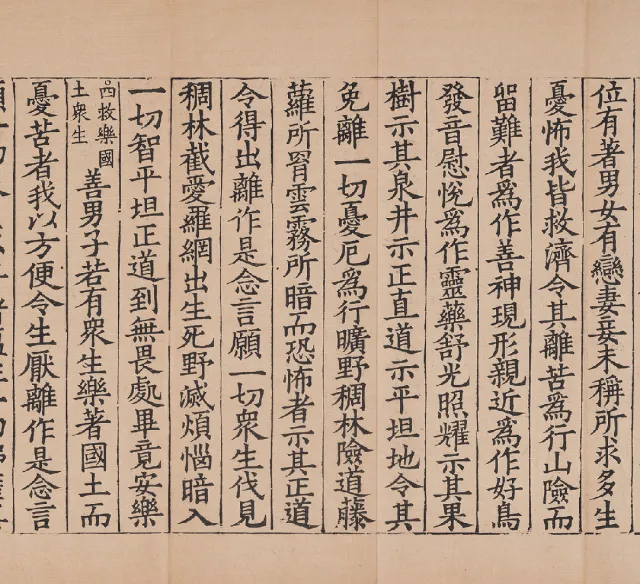 位有著男女有戀妻妾未稱所求多生
憂怖我皆救濟令其離苦爲行山險而
留難者爲作善神現形親近爲作好鳥
發音慰悅爲作靈藥舒光照耀示其果
樹示其泉井示正直道示平坦地令其
免離一切憂厄爲行曠野稠林險道藤
蘿所罥雲霧所暗而恐怖者示其正道
令得出離作是念言願一切衆生伐見
稠林截愛羅網出生死野滅煩惱暗入
一切智平坦正道到無畏處畢竟安樂
四救樂國
土衆生
善男子若有衆生樂著國土而
憂苦者我以方便令生厭離作是念言